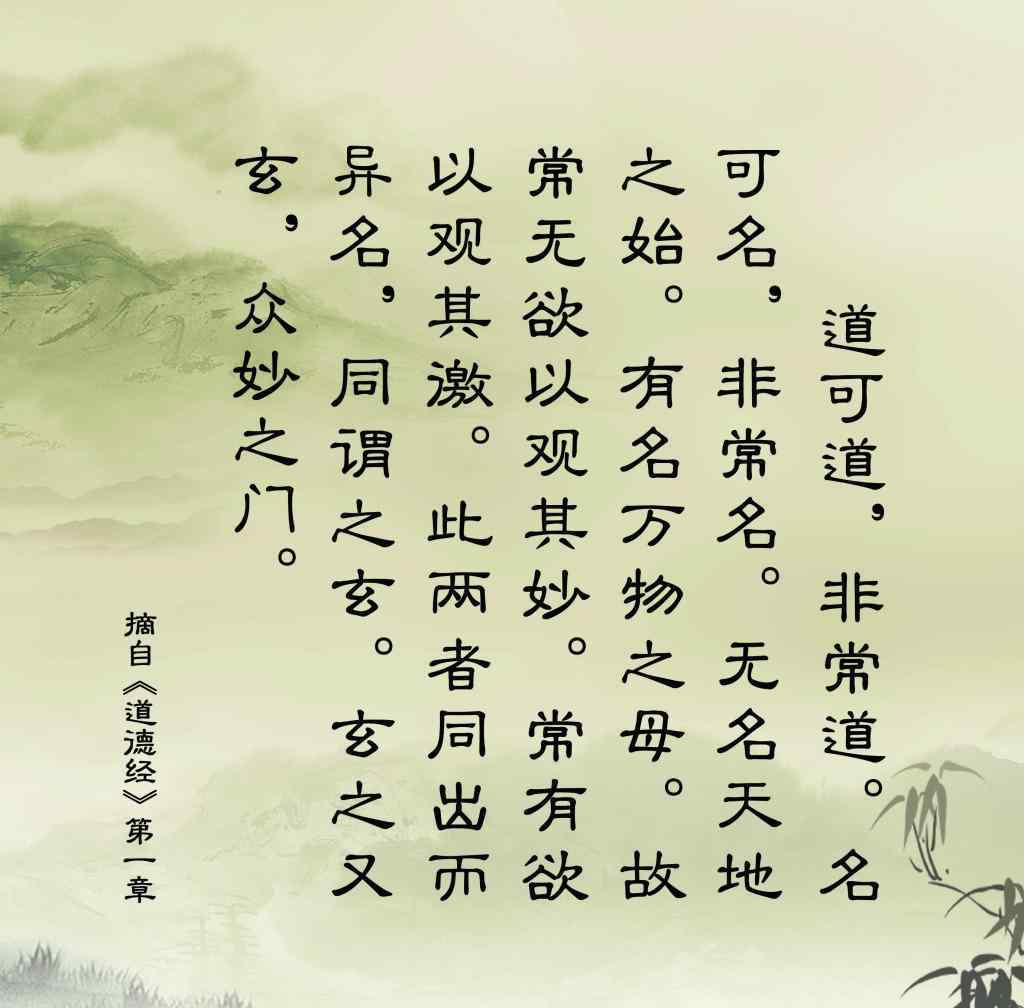 道可道，非常道。名
可名，非常名。无名天地
之始。有名万物之母。故
常无欲以观其妙。常有欲
以观其激。此两者同出而
异名，同谓之玄。玄之又
玄，众妙之门。
摘自《道德经》第一章